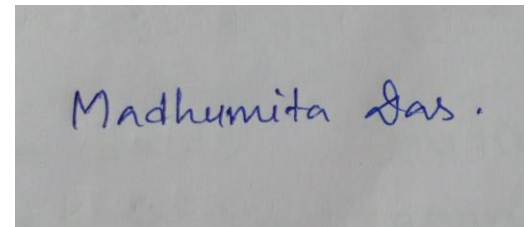 Madhumita Das.